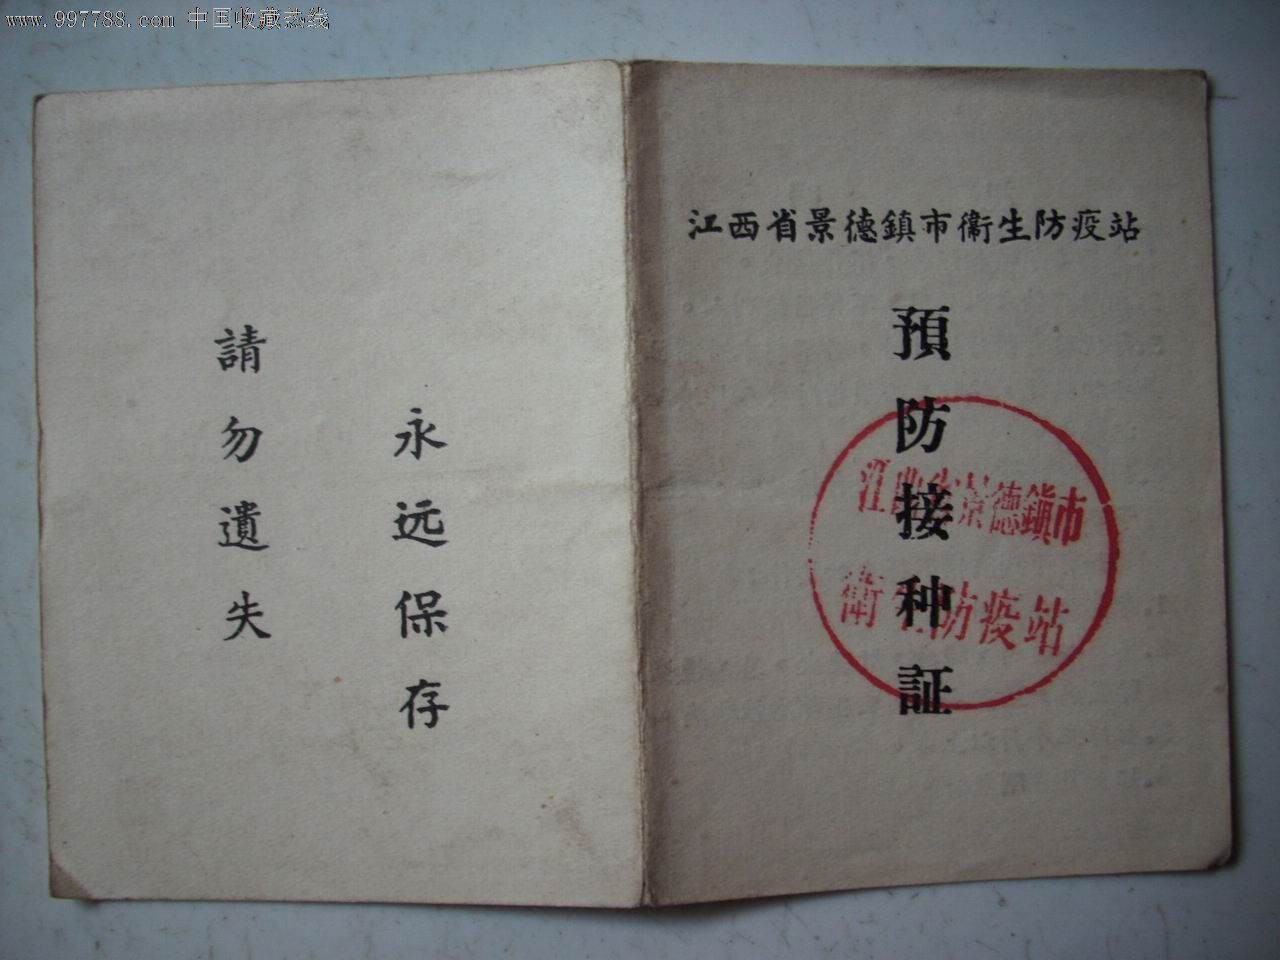 www.997788.com 中国收藏热线
江西省景德鎮市衛生防疫站
預防接种証
江西省景德鎮市
衛生防疫站
永远保存
請勿遺失